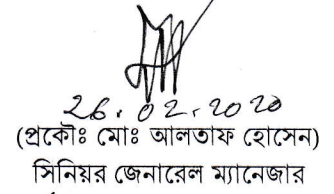 26.02.2020
(প্রকৌঃ মোঃ আলতাফ হোসেন)
সিনিয়র জেনারেল ম্যানেজার